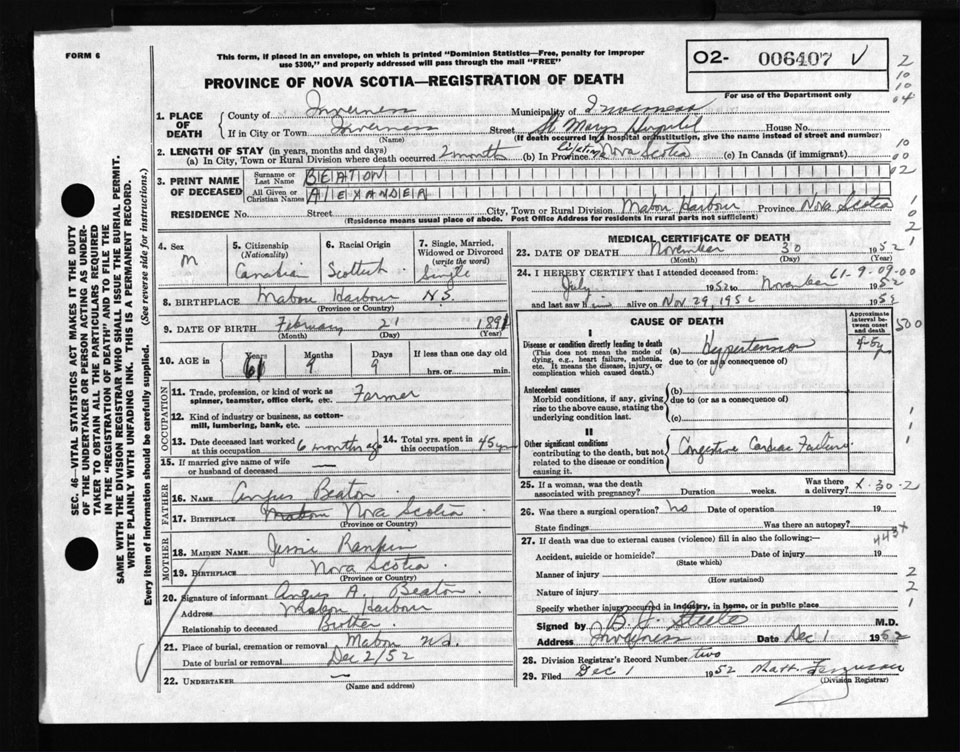 FORM 6
This form, if placed in an envelope, on which is printed "Dominion Statistics—Free, penalty for improper
use $300," and properly addressed will pass through the mail "FREE"
O2- 006407 V
PROVINCE OF NOVA SCOTIA—REGISTRATION OF DEATH
For use of the Department only
2
10
10
04
10
00
02
1. PLACE OF DEATH
County of Inverness Municipality of Inverness
If in City or Town Inverness Street St Marys Hospital House No.
(Name) (If death occurred in a hospital or institution, give the name instead of street and number)
2. LENGTH OF STAY (in years, months and days)
(a) In City, Town or Rural Division where death occurred 2 month (b) In Province lifetime Nova Scotia (c) In Canada (if immigrant)
3. PRINT NAME OF DECEASED
Surname or Last Name BEATON
All Given or Christian Names ALEXANDER
RESIDENCE No. Street City, Town or Rural Division Mabou Harbour Province Nova Scotia
(Residence means usual place of abode. Post Office Address for residents in rural parts not sufficient)
4. Sex M
5. Citizenship (Nationality) Canadia
6. Racial Origin Scottish
7. Single, Married, Widowed or Divorced (write the word) Single
8. BIRTHPLACE Mabou Harbour N.S.
(Province or Country)
9. DATE OF BIRTH February 21 1891
(Month) (Day) (Year)
10. AGE in Years 61 Months 9 Days 9 If less than one day old
hrs. or min.
OCCUPATION
11. Trade, profession, or kind of work as spinner, teamster, office clerk, etc. Farmer
12. Kind of industry or business, as cotton-mill, lumbering, bank, etc.
13. Date deceased last worked at this occupation 6 month ago 14. Total yrs. spent in this occupation 45 yrs
15. If married give name of wife or husband of deceased —
FATHER
16. NAME Angus Beaton
17. BIRTHPLACE Mabou Nova Scotia
(Province or Country)
MOTHER
18. MAIDEN NAME Jessie Rankin
19. BIRTHPLACE Nova Scotia
(Province or Country)
20. Signature of informant Angus A. Beaton
Address Mabou Harbour
Relationship to deceased Brother
21. Place of burial, cremation or removal Mabou N.S.
Date of burial or removal Dec 2/52
22. UNDERTAKER —
(Name and address)
MEDICAL CERTIFICATE OF DEATH
23. DATE OF DEATH November 30 1952
(Month) (Day)
24. I HEREBY CERTIFY that I attended deceased from: 61-9-09-00
July 1952 to November 1952
and last saw him alive on Nov 29, 1952 1952
CAUSE OF DEATH
Approximate interval between onset and death
I
Disease or condition directly leading to death
(This does not mean the mode of dying, e.g., heart failure, asthenia, etc. It means the disease, injury, or complication which caused death.)
(a) Hypertension 4-5y
due to (or as a consequence of)
500
Antecedent causes
Morbid conditions, if any, giving rise to the above cause, stating the underlying condition last.
(b)
due to (or as a consequence of)
(c)
II
Other significant conditions
contributing to the death, but not related to the disease or condition causing it.
Congestive Cardiac Failure
25. If a woman, was the death associated with pregnancy? Duration weeks. Was there a delivery? X-30-2
26. Was there a surgical operation? No Date of operation 19
State findings Was there an autopsy?
443X
27. If death was due to external causes (violence) fill in also the following:—
Accident, suicide or homicide? Date of injury 19
(State which)
Manner of injury
(How sustained)
Nature of injury
Specify whether injury occurred in industry, in home, or in public place
Signed by B. J. Steele M.D.
Address Inverness Date Dec 1 1952
28. Division Registrar's Record Number two
29. Filed Dec 1 1952 Ferguson
(Division Registrar)
SEC. 46—VITAL STATISTICS ACT MAKES IT THE DUTY
OF THE UNDERTAKER OR PERSON ACTING AS UNDERTAKER
TO OBTAIN ALL THE PARTICULARS REQUIRED
IN THE "REGISTRATION OF DEATH" AND TO FILE THE
SAME WITH THE DIVISION REGISTRAR WHO SHALL ISSUE THE BURIAL PERMIT.
WRITE PLAINLY WITH UNFADING INK. THIS IS A PERMANENT RECORD.
Every item of information should be carefully supplied. (See reverse side for instructions.)